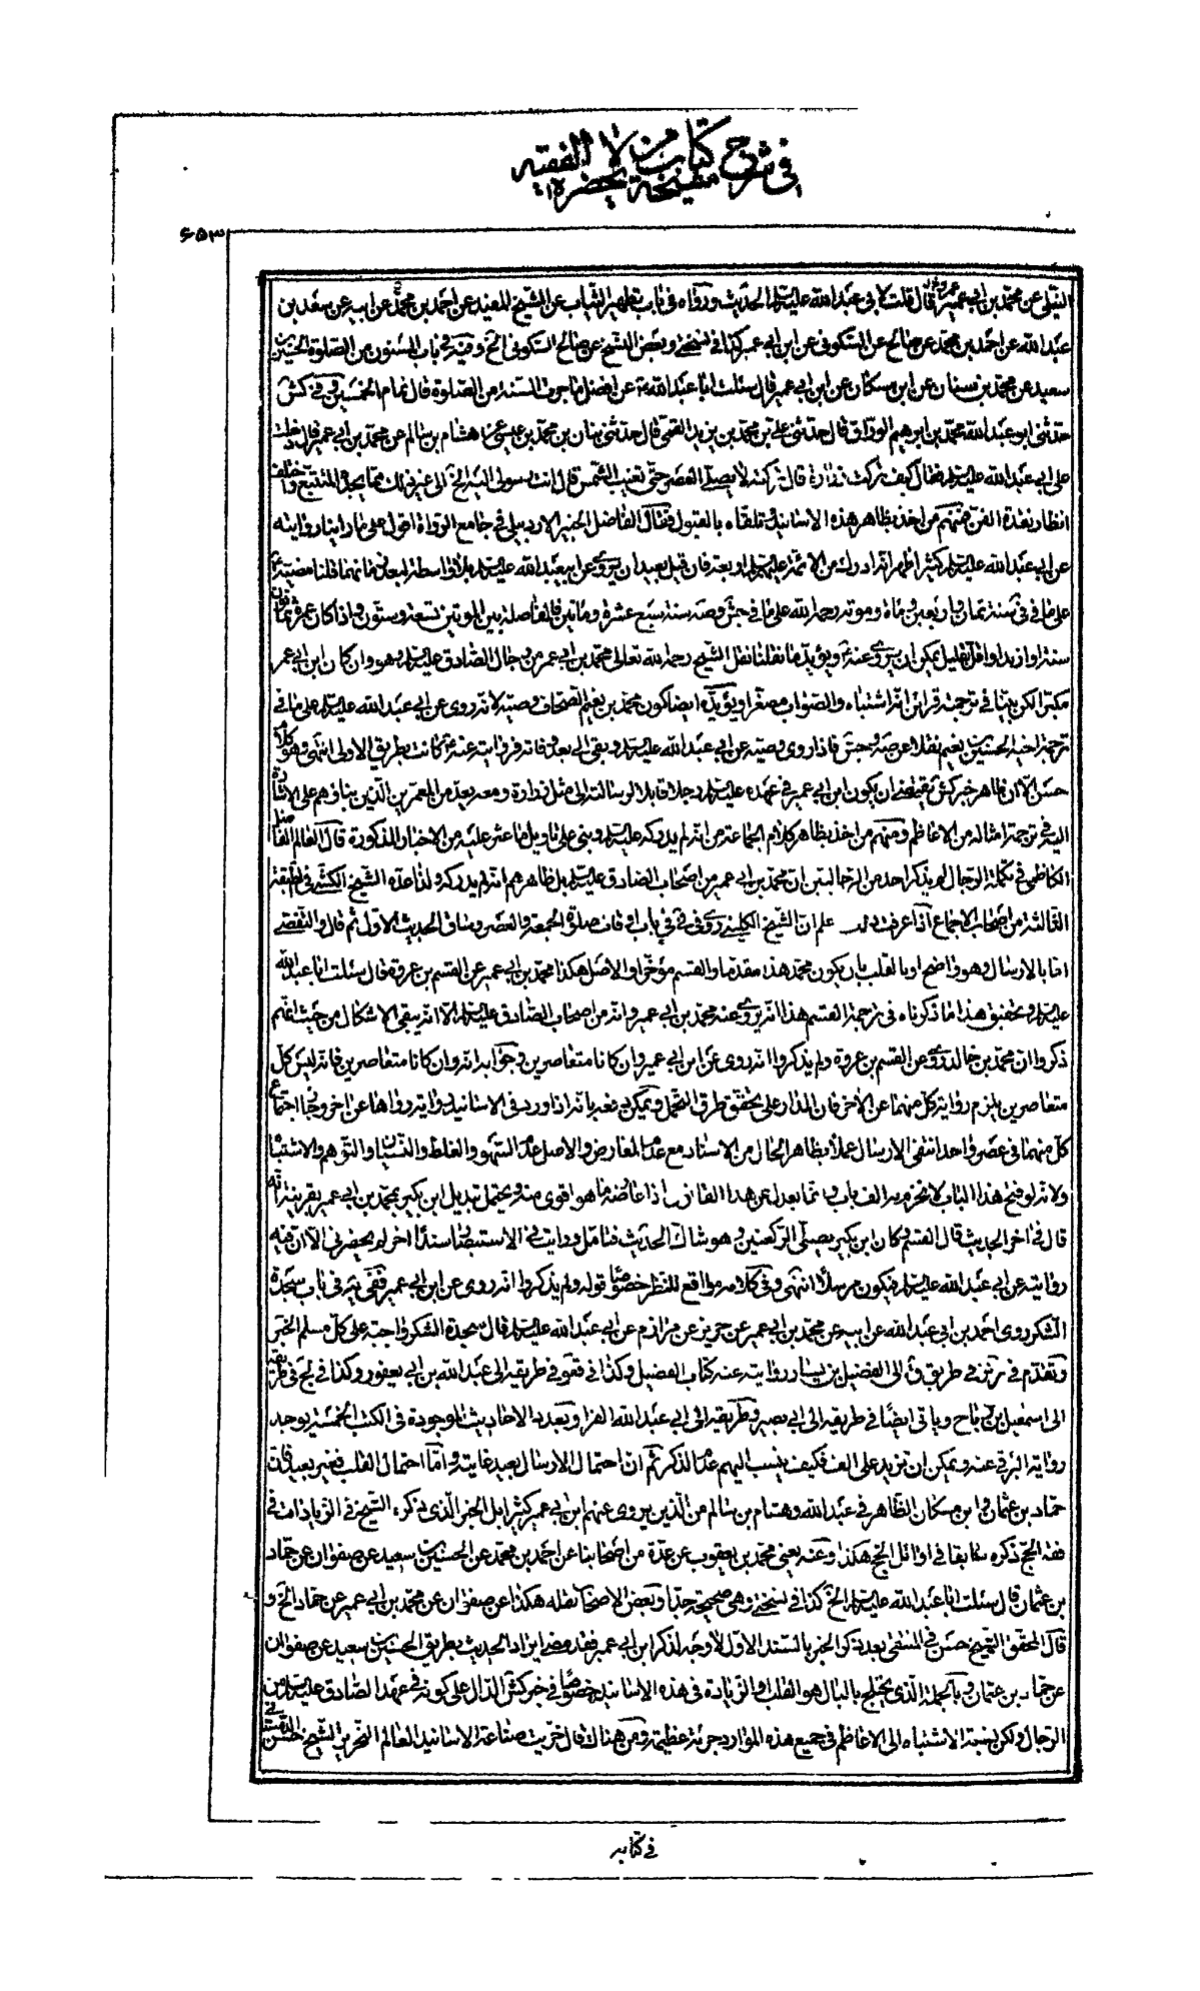 في شرح مشيخة كتاب من لا يحضره الفقيه
٦٥٣
عن محمد بن ابي عمير قال قلت لابي عبد الله عليه السلام الحديث ورواه في باب تطهير الثياب عن الشيخ المفيد عن احمد بن محمد عن ابيه عن سعد بن
عبد الله عن احمد بن محمد عن صالح عن السكوني عن ابن ابي عمير كذا في نسختي وبعض النسخ عن صالح السكوني الخ وفيه في باب المسنون من الصلوة الحسين بن
سعيد عن محمد بن سنان عن ابن مسكان عن ابن ابي عمير قال سئلت ابا عبد الله ع عن افضل ما جرت به السنة من الصلوة قال تمام الخمسين وفي كش
حدثني ابو عبد الله محمد بن ابرهيم الوراق قال حدثني علي بن محمد بن يزيد القمي قال حدثني بنان بن محمد بن عيسى عن هشام بن سالم عن محمد بن ابي عمير قال دخلت
على ابي عبد الله عليه السلام فقال كيف تركت زرارة قال تركته لا يصلي العصر حتى تغيب الشمس قال انت رسولي اليه الخ الى غير ذلك مما يجده المتتبع واختلف
انظار نقدة الفن فمنهم من اخذ بظاهر هذه الاسانيد وتلقاه بالقبول فقال الفاضل الخبير الاردبيلي في جامع الرواة اقول على ما راينا روايته
عن ابي عبد الله عليه السلام كثيرا ظهر انه ادرك من الائمة عليهم السلام اربعة فان قيل بعيد ان يروي عن ابي عبد الله عليه السلام بلا واسطة لبعد زمانهما قلنا مضيه ع
على ما في في سنة ثمان واربعين ومائة وموته رحمه الله على ما في جش وصه سنة سبع عشرة ومأتين فالفاصلة بين الموتين تسعة وستون واذا كان عمره ثمانون
سنة او ازيد او اقل بقليل يمكن ان يروي عنه ع ويؤيد ما نقلنا نقل الشيخ رحمه الله تعالى محمد بن ابي عمر من رجال الصادق عليه السلام وهو وان كان ابن ابي عمر
مكبرا لكن بينا في ترجمته قرائن انه اشتباه والصواب مصغرا ويؤيده ايضا كون محمد بن نعيم الصحاف وصيه لانه روى عن ابي عبد الله عليه السلام على ما في
ترجمة اخيه الحسين بن نعيم نقلا عن صه وجش فاذا روى وصيه عن ابي عبد الله عليه السلام وبقي الى بعد وفاته فروايته عنه ع كانت بطريق الاولى انتهى وهو كلام
حسن الا ان ظاهر خبر كش يقتضي ان يكون ابن ابي عمير في عهده عليه السلام رجلا قابلا لرسالته الى مثل زرارة ومعه يعد من المعمرين الذين بناؤهم على الاشارة
اليه في ترجمة امثاله من الاعاظم ومنهم من اخذ بظاهر كلام الجماعة من انه لم يدركه عليه السلام وبنى على تاويل ما عثر عليه من الاخبار المذكورة قال العالم الفاضل
الكاظمي في تكملة الرجال لم يذكر احد من الرجاليين ان محمد بن ابي عمير من اصحاب الصادق عليه السلام بل ظاهرهم انه لم يدركه ولذا عده الشيخ الكشي في الطبقة
الثالثة من اصحاب الاجماع اذا عرفت ذلك علم ان الشيخ الكليني روى في في باب اوقات صلوة الجمعة والعصر وساق الحديث الاول ثم قال والتفصي
اما بالارسال وهو واضح او بالقلب بان يكون محمد هذا مقدما والقسم مؤخرا والاصل هكذا محمد بن ابي عمير عن القسم بن عروة قال سئلت ابا عبد الله
عليه السلام وتحقيق هذا ما ذكرناه في ترجمة القسم هذا انه يروي عنه محمد بن ابي عمير وانه من اصحاب الصادق عليه السلام الا انه يبقى الاشكال من حيث انهم
ذكروا ان محمد بن خالد روى عن القسم بن عروة ولم يذكروا انه روى عن ابن ابي عمير وان كانا متعاصرين وجوابه انه وان كانا متعاصرين فانه ليس كل
متعاصرين يلزم رواية كل منهما عن الاخر فان المدار على تحقق طرق التحمل ويمكن دفعه بانه اذا ورد في الاسانيد رواية رواها عن اخر وجاز اجتماع
كل منهما في عصر واحد انتفى الارسال عملا بظاهر الحال من الاسناد مع عدم المعارض والاصل عدم السهو والغلط والنسيان والتوهم والاشتباه
ولانه لو فتح هذا الباب لانخرم به الف باب وانما يعدل عن هذا القانون اذا عارضه ما هو اقوى منه ويحتمل تبديل ابن بكير بمحمد بن ابي عمير بقرينة انه
قال في اخر الحديث قال القسم وكان ابن بكير يصلي الركعتين وهو شاك الحديث فتامل ورايت في الاستبصار سندا اخر لم يحضرني الآن فيه
روايته عن ابي عبد الله عليه السلام فيكون مرسلا انتهى وفي كلامه مواقع للنظر خصوصا قوله ولم يذكروا انه روى عن ابن ابي عمير ففي يب في باب سجدة
الشكر روى احمد بن ابي عبد الله عن ابيه عن محمد بن ابي عمير عن حريز عن مرازم عن ابي عبد الله عليه السلام قال سجدة الشكر واجبة على كل مسلم الخبر
وتقدم في طريق الى الفضيل بن يسار روايته عنه كتاب الفضيل وكذا في طريقه الى عبد الله بن ابي يعفور وكذا في طريقه
الى اسمعيل بن رباح وياتي ايضا في طريقه الى ابي بصير وطريقه الى ابي عبد الله الفراء وبعد بها الاحاديث الموجودة في الكتب الخمسة يوجد
رواية البرقي عنه ويمكن ان تزيد على الف فكيف ينسب اليهم عدم الذكر ثم ان احتمال الارسال بعيد غايته واما احتمال القلب فغير بعيد فان
حماد بن عثمان وابن مسكان الظاهر في عبد الله وهشام بن سالم من الذين يروي عنهم ابن ابي عمير كثيرا بل الخبر الذي ذكره الشيخ في الزيادات في
فقه الحج ذكره سابقا في اوائل الحج هكذا وعنه يعني محمد بن يعقوب عن عدة من اصحابنا عن احمد بن محمد عن الحسين بن سعيد عن صفوان عن حماد
بن عثمان قال سئلت ابا عبد الله عليه السلام الخ كذا في نسختي وهي صحيحة جدا وبعض الاصحاب نقله هكذا عن صفوان عن محمد بن ابي عمير عن حماد الخ و
قال المحقق الشيخ حسن في المنتقى بعد ذكر الخبر بالسند الاول لا وجه لذكر ابن ابي عمير فقد مضى ايراد الحديث بطريق الحسين بن سعيد عن صفوان
عن حماد بن عثمان وبالجملة الذي يختلج بالبال هو القلب او الزيادة في هذه الاسانيد خصوصا في خبر كش الدال على كونه في عهد الصادق عليه السلام من
الرجال ولكن نسبة الاشتباه الى الاعاظم في جميع هذه الموارد جرئة عظيمة ومن هنا قال خريت صناعة الاسانيد العالم النحرير الشيخ حسن
في كتابه